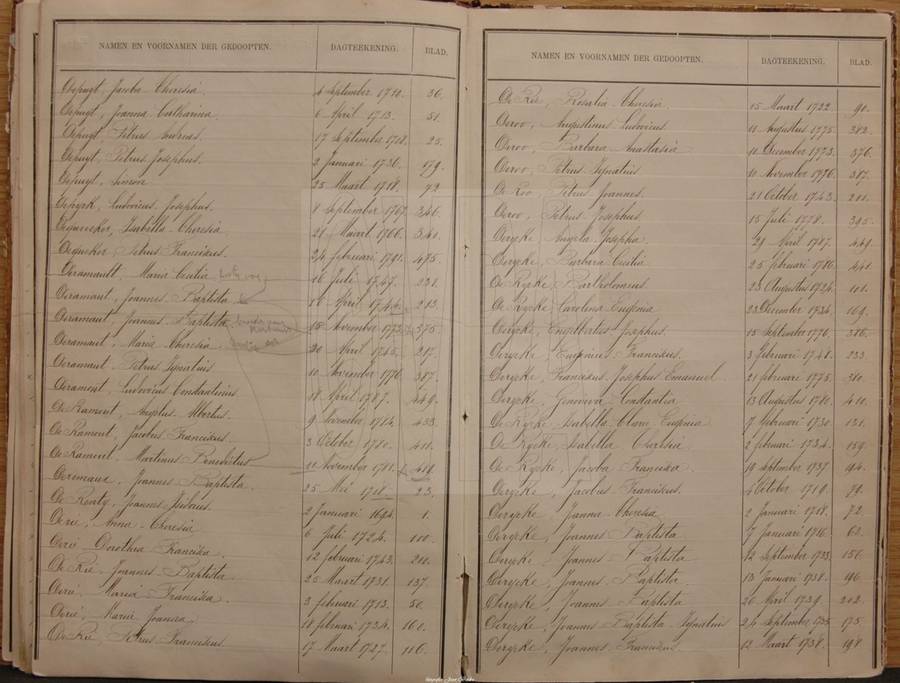 NAMEN EN VOORNAMEN DER GEDOOPTEN. DAGTEEKENING. BLAD.
Depuyt, Jacoba Theresia 4 September 1710. 36.
Depuyt, Joanna Catharina 6 April 1713. 51.
Depuyt, Petrus Andreas. 17 September 1718. 25.
Depuyt, Petrus Josephus. 2 Januari 1736. 179.
Depuyt, Simon 25 Maart 1718. 72
Depuyk, Ludovicus Josephus. 8 September 1767. 346.
Dequeecker, Isabella Theresia 21 Maart 1766. 340.
Dequecker Petrus Franciscus. 24 februari 1791. 475.
Deramault, Maria Cecilia 16 Juli 1747. 231.
Deramaut, Joannes Baptista 26 April 1744. 213.
Deramaut, Joannes Baptista 15 November 1773. 375.
Deramaut, Maria Theresia. 20 April 1745. 217.
Deramaut, Petrus Ignatius 10 November 1776. 387.
Deramont, Ludovicus Constantinus 18 April 1787. 449.
De Rament, Albertus. 9 November 1784. 433.
De Rament, Jacobus Franciscus. 3 October 1780. 411.
De Rament, Martinus Benedictus 11 November 1781. 418.
Deremaux, Joannes Baptista. 25 Mei 1718. 23.
De Renty, Joannes 2 Januari 1694. 1.
Derie, Anna Theresia 6 Juli 1724. 100.
Derie Dorothea Franciska 12 februari 1743. 210.
De Rie, Joannes Baptista 25 Maart 1731. 137.
Derie, Maria Franciska. 3 februari 1713. 50.
Derie, Maria Joanna 18 februari 1734. 160.
De Rie, Petrus Franciscus. 17 Maart 1727. 116.
NAMEN EN VOORNAMEN DER GEDOOPTEN. DAGTEEKENING. BLAD.
De Rie, Rosalia Theresia 15 Maart 1722. 90.
Deroo, Augustinus Ludovicus 11 Augustus 1775. 382.
Deroo, Barbara Anastasia 10 December 1773. 376.
Deroo, Petrus Ignatius 10 November 1776. 387.
De Roo, Petrus Joannes. 21 October 1743. 211.
Deroo, Petrus Josephus 15 Juli 1778. 395.
Deryke, Angela Josepha. 29 April 1787. 449.
Deryke, Barbara Cecilia 25 februari 1786. 441.
De Rycke Bartholomeus 23 Augustus 1724. 101.
De Rycke, Carolina Eugenia 23 December 1734. 169.
Derycke, Engelbertus Josephus. 15 September 1776. 386.
Derycke, Eugenius Franciscus. 3 februari 1748. 233
Derycke, Franciscus Josephus Emanuel. 21 februari 1775. 380.
Derycke, Genoveva Constantia 13 Augustus 1780. 410.
De Rycke, Isabella Clara Eugenia 7 februari 1730. 131.
De Rycke, Isabella Theresia 2 februari 1734. 159.
De Rycke, Jacoba Franciska. 19 September 1737. 194.
Derycke, Jacobus Franciscus. 4 October 1719. 79.
Derycke, Joanna Theresia 2 Januari 1718. 72.
Derycke, Joannes Baptista 7 Januari 1716. 62.
Derycke, Joannes Baptista 12 September 1733. 156.
Derycke, Joannes Baptista. 13 Januari 1738. 196.
Derycke, Joannes Baptista 26 April 1739. 202.
Derycke, Joannes Baptista Ignatius 24 September 1735 175.
Derycke, Joannes Franciscus. 12 Maart 1738. 198